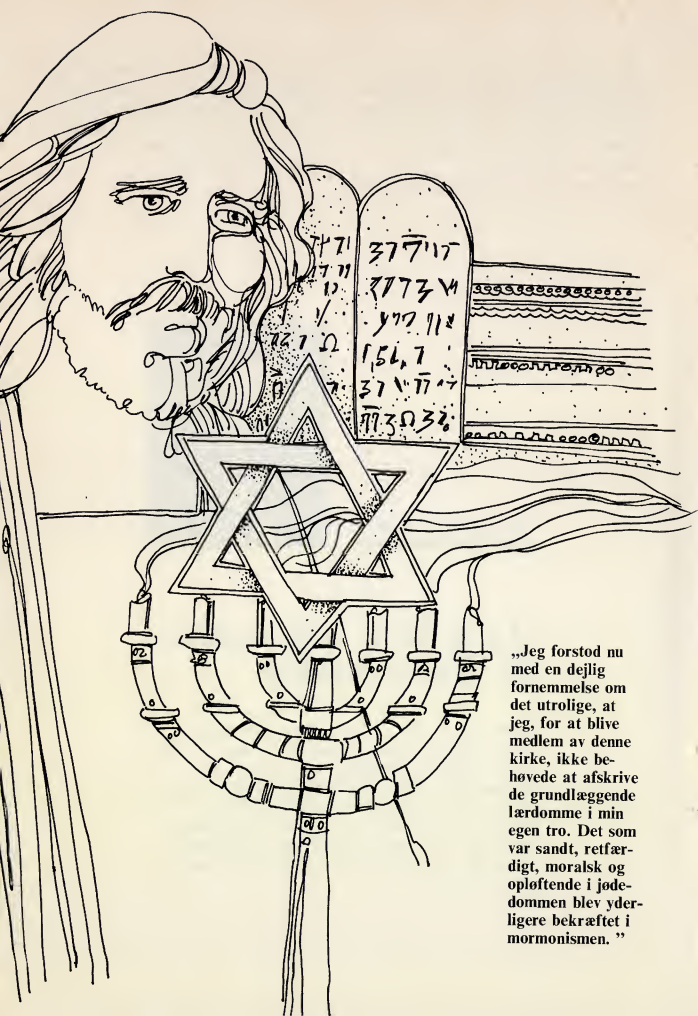 „Jeg forstod nu
med en dejlig
fornemmelse om
det utrolige, at
jeg, for at blive
medlem av denne
kirke, ikke be-
høvede at afskrive
de grundlæggende
lærdomme i min
egen tro. Det som
var sandt, retfær-
digt, moralsk og
opløftende i jøde-
dommen blev yder-
ligere bekræftet i
mormonismen. ”